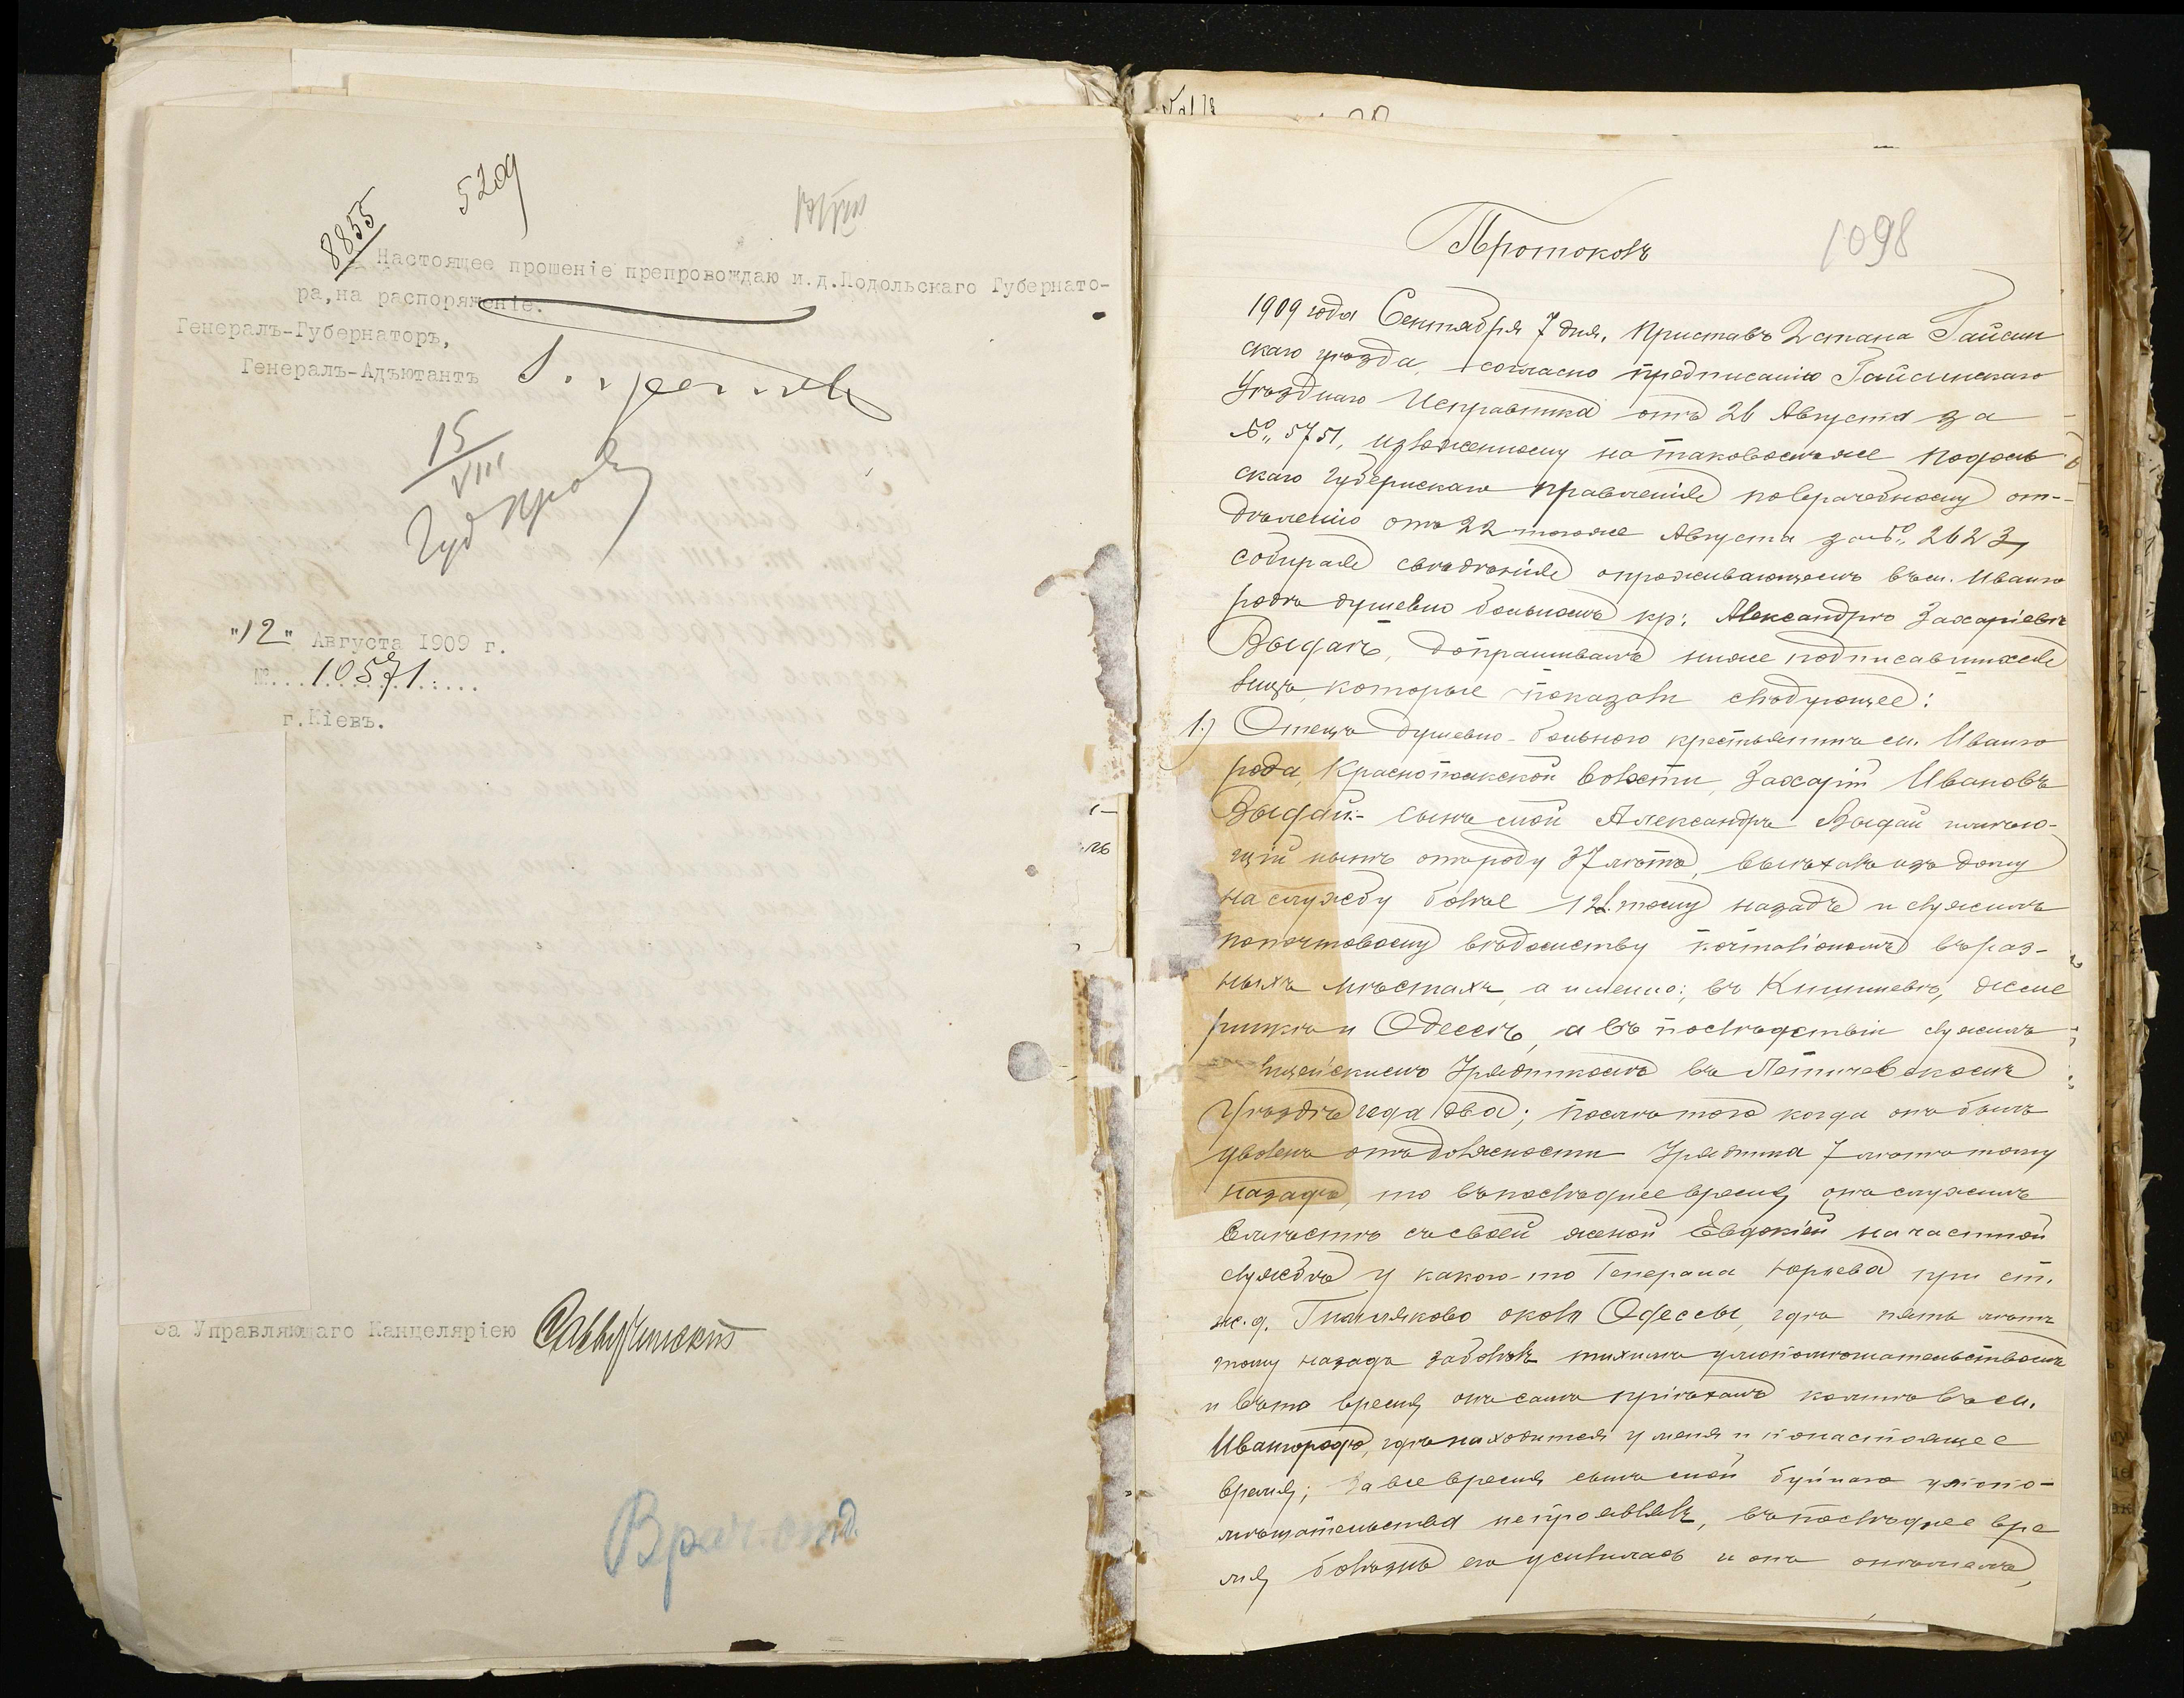 8855
5209
Настоящее прошеніе препровождаю и.д.Подольскаго Губернато-
ра,на распоряженіе.
Генералъ-Губернаторъ,
Генералъ-Адъютантъ
15
VIII
Губ Прав
"12" Августа 1909 г.
№ 10571.
г.Кіевъ.
За Управляющаго Канцеляріею
Врач. отд.
Протоколъ
1098
1909 года Сентября 7 дня, Приставъ 2 стана Гайсин
скаго уѣзда, согласно предписанію Гайсинскаго
Уѣзднаго Исправника отъ 26 Августа за
№ 5751, изложенному на таковомъ же Подоль
скаго Губернскаго Правленія по врачебному от-
дѣленію отъ 22 того же Августа за № 2623,
собирая свѣдѣнія о проживающемъ въ м. Иванго
родѣ душевно больномъ кр: Александрѣ Захаріевѣ
Выдаѣ, допрашивалъ ниже подписавшихся
лицъ, которые показали слѣдующее:
1) Отецъ душевно-больного крестьянинъ м. Иванго
рода, Краснопольской волости, Захарій Ивановъ
Выдай:- Сынъ мой Александръ Выдай имѣю-
щій нынѣ отъ роду 37 лѣтъ, выѣхалъ изъ дому
на службу болѣе 12 л. тому назадъ и служилъ
по почтовому вѣдомству почталіономъ въ раз-
ныхъ мѣстахъ, а именно: въ Кишиневѣ, Жме
ринкѣ и Одессѣ, а въ послѣдствіи служилъ
лицейскимъ Урядникомъ въ Летичевскомъ
Уѣздѣ года два; послѣ того когда онъ былъ
уволенъ отъ должности Урядника 7 лѣтъ тому
назадъ, то въ послѣднее время онъ служилъ
вмѣстѣ съ своей женой Евдокіей на частной
службѣ у какого-то Генерала Юрьева при ст.
ж.д. Гниляково около Одессы, гдѣ пять лѣтъ
тому назадъ заболѣлъ тихимъ умопомѣшательствомъ
и въ то время онъ самъ пріѣхалъ ко мнѣ въ м.
Ивангородъ, гдѣ находится у меня и по настоящее
время; за все время сынъ мой буйнаго умопо-
мѣшательства не проявлялъ, въ послѣднее вре
мя болѣзнь его усилилась и онъ онѣмелъ,